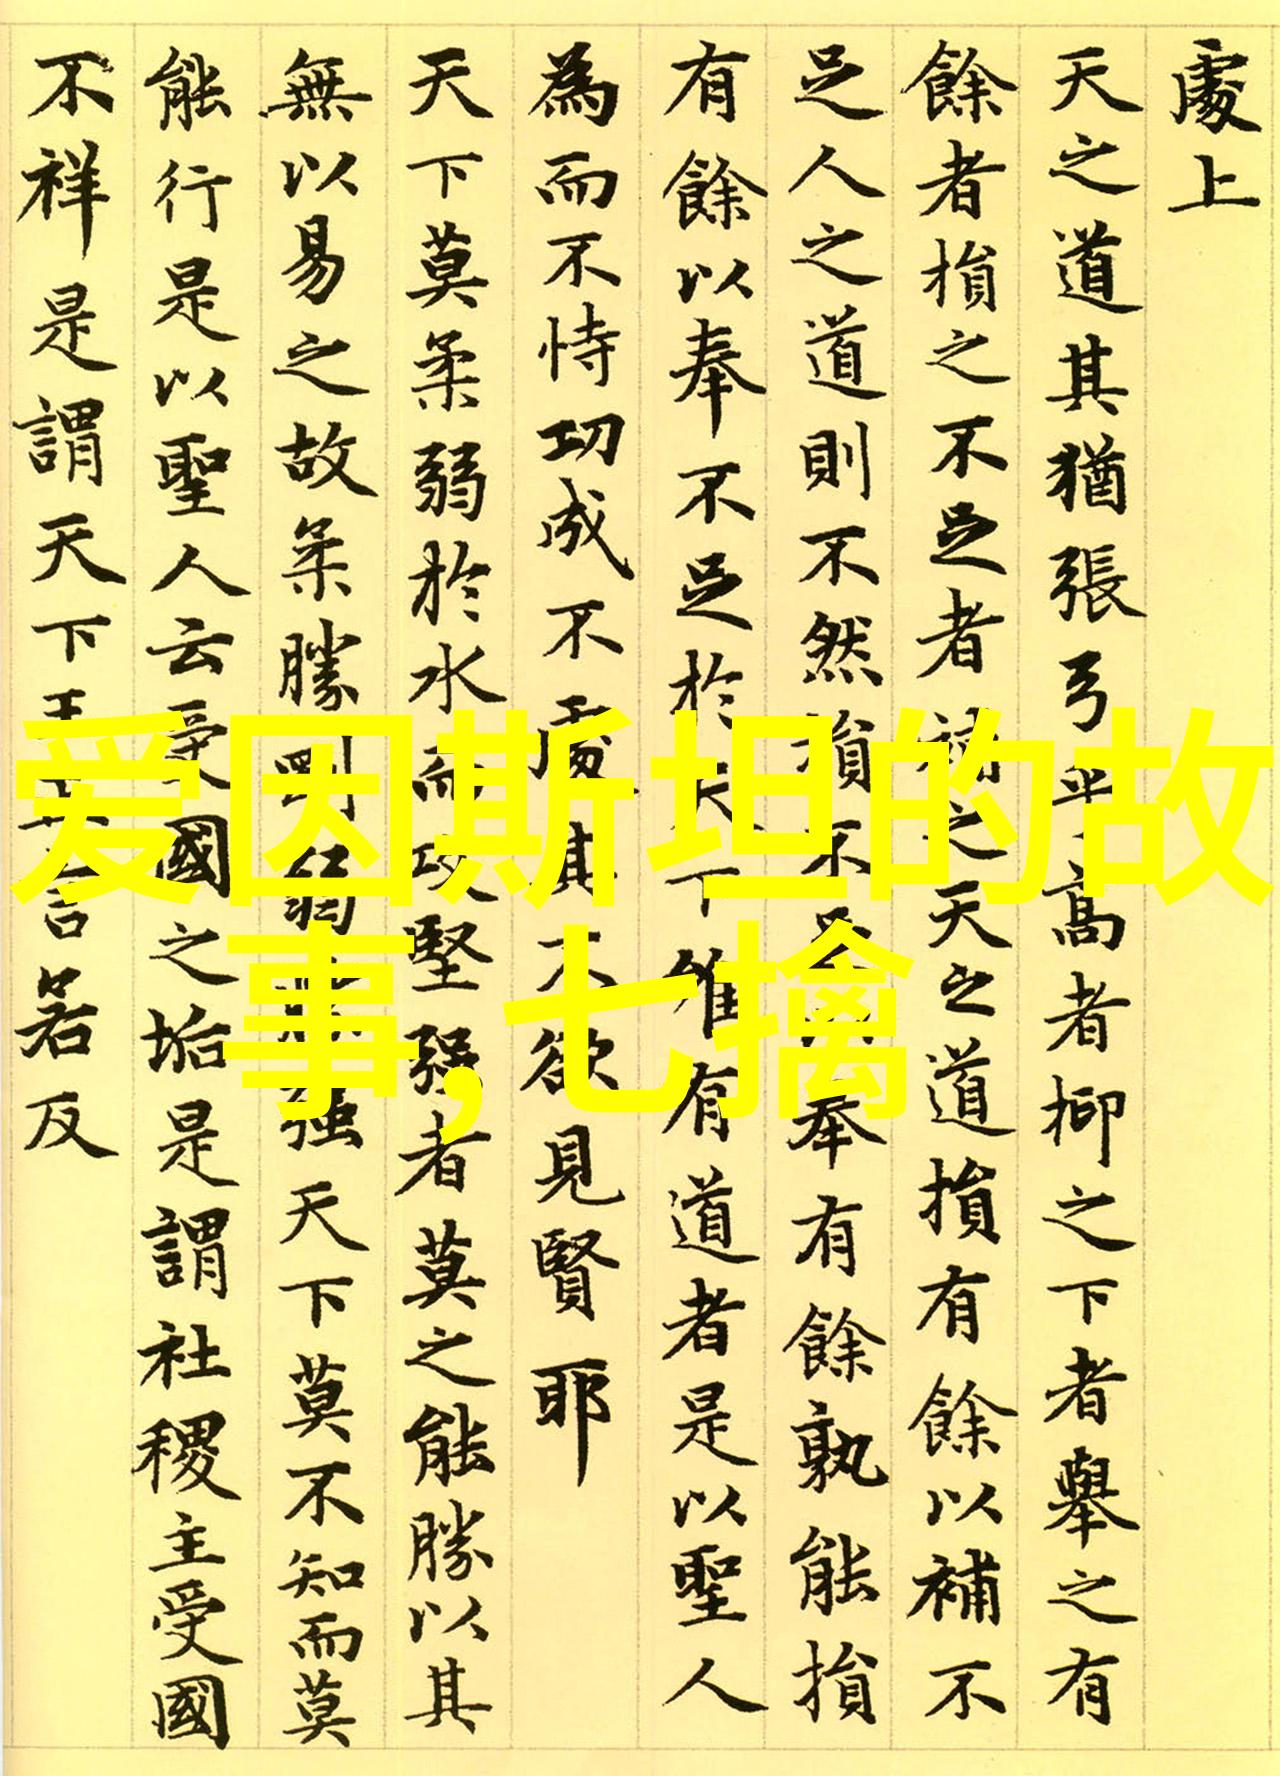 處上
天之道其猶張弓乎高者抑之下者舉之有
餘者損之不足者補之天之道損有餘以補不
足人之道則不然損不足以奉有餘孰能損
有餘以奉不足於天下唯有道者是以聖人
為而不恃功成不處其不欲見賢耶
天下莫柔弱於水而攻堅强者莫之能勝以其
無以易之故柔勝剛弱勝強天下莫不知而莫
能行是以聖人云受國之垢是謂社稷主受國
不祥是謂天下王其言若反
爱因斯坦的故
事,七擒